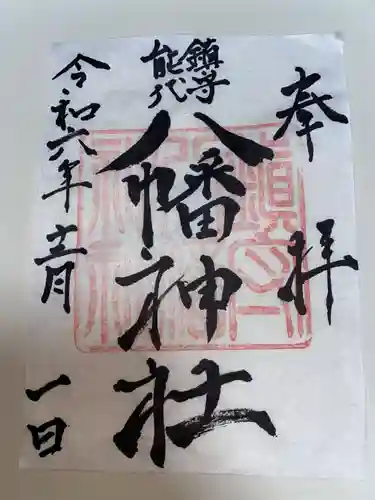 奉拝
鎮守
能代
八幡神社
令和六年十二月
一日